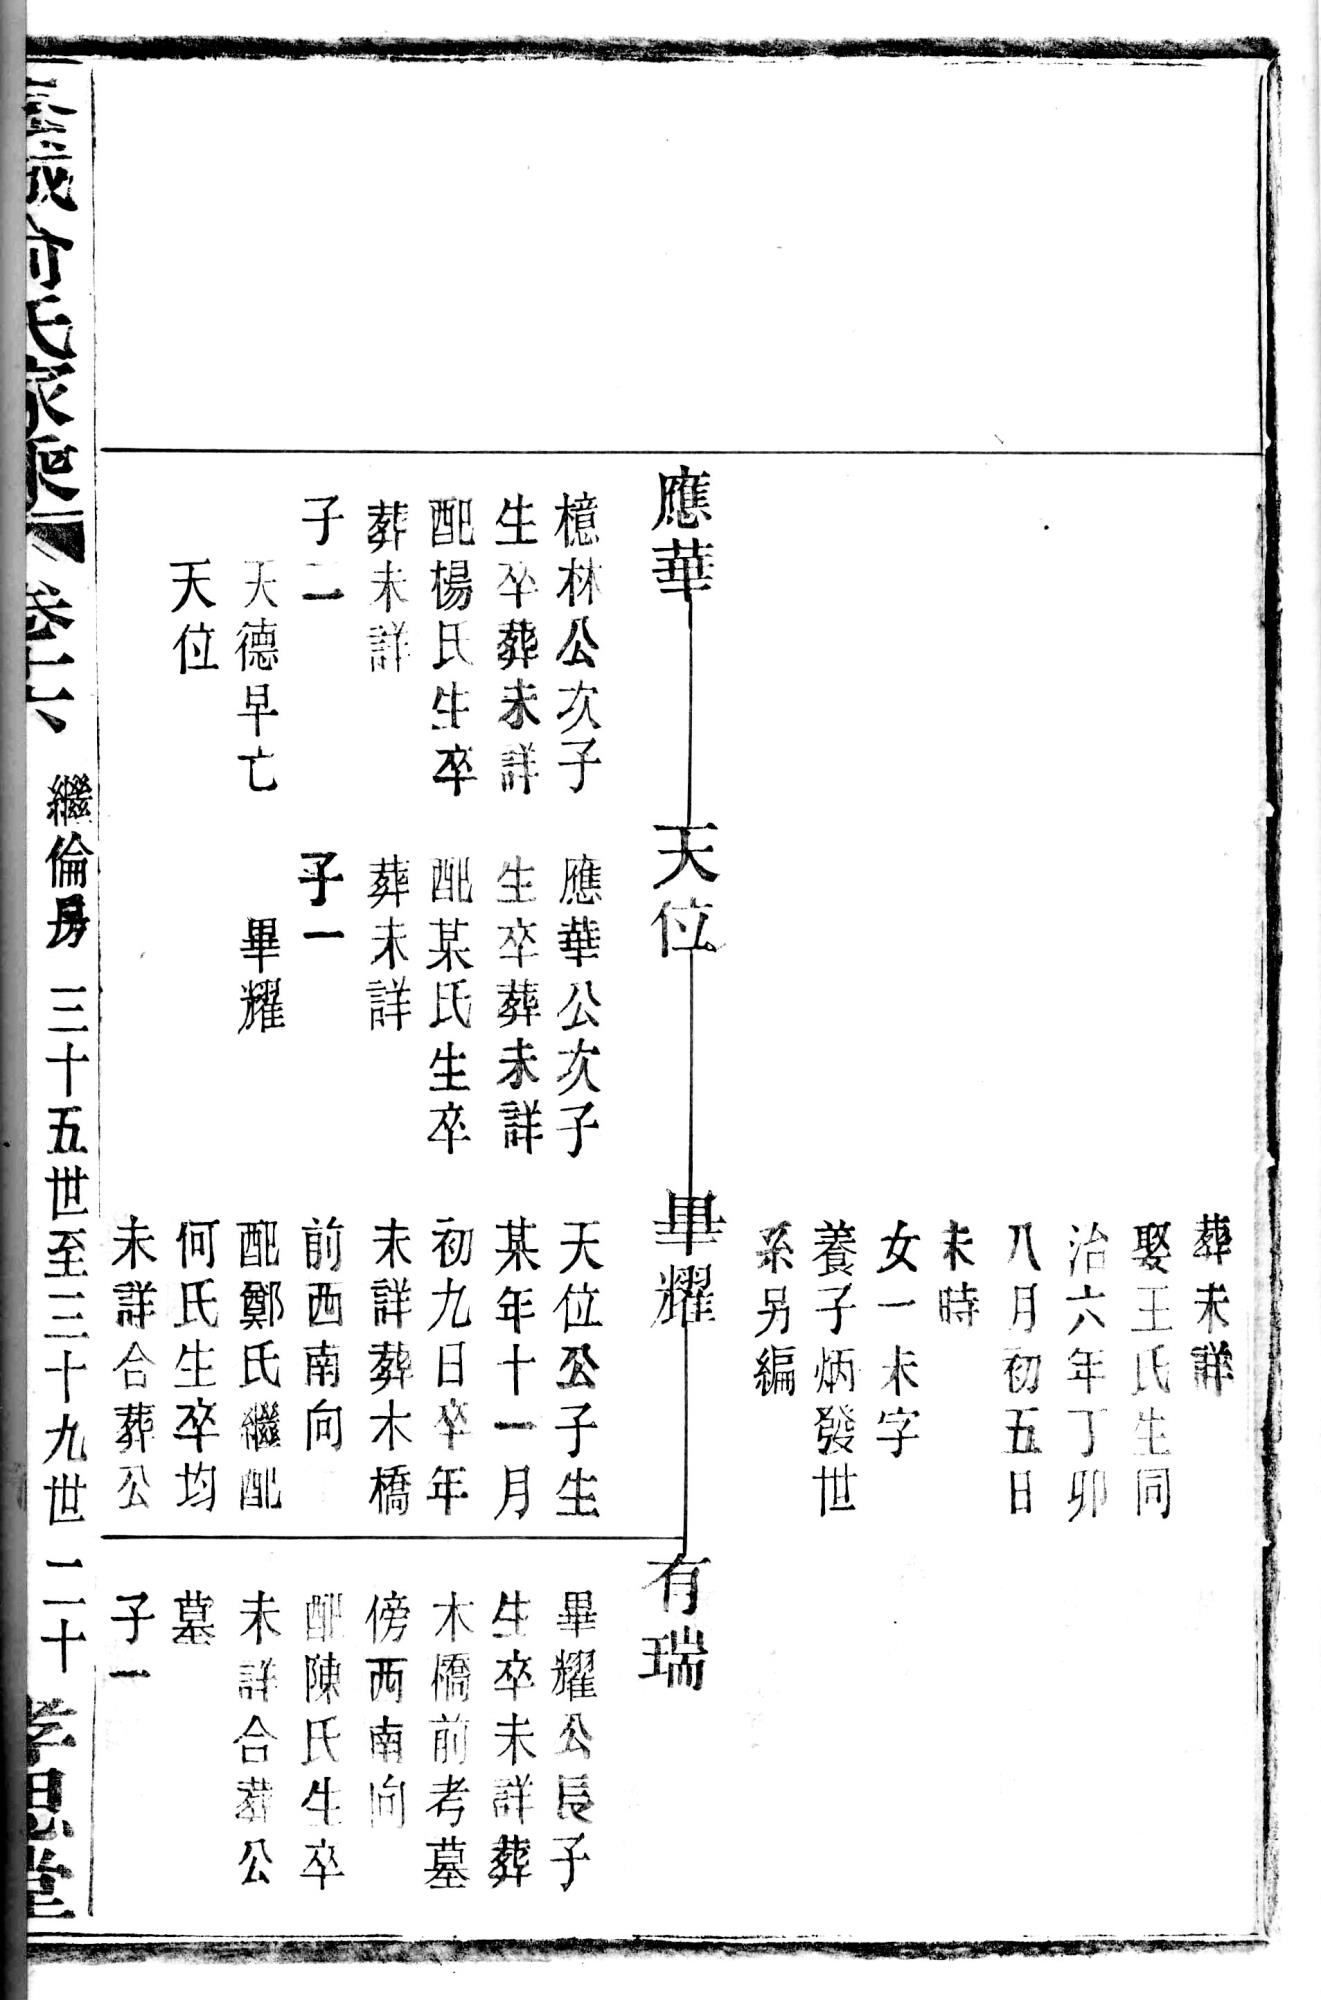 葬未詳
娶王氏生同
治六年丁卯
八月初五日
未時
女一未字
養子炳發世
系另編
應華
檍林公次子
生卒葬未詳
配楊氏生卒
葬未詳
子二
天德早亡
天位
天位
應華公次子
生卒葬未詳
配某氏生卒
葬未詳
子一
畢耀
畢耀
天位公子生
某年十一月
初九日卒年
未詳葬木橋
前西南向
配鄭氏繼配
何氏生卒均
未詳合葬公
有瑞
畢耀公長子
生卒未詳葬
木橋前考墓
傍西南向
配陳氏生卒
未詳合葬公
墓
子一
俞氏家乘 卷十六 繼倫房 三十五世至三十九世 二十 孝思堂